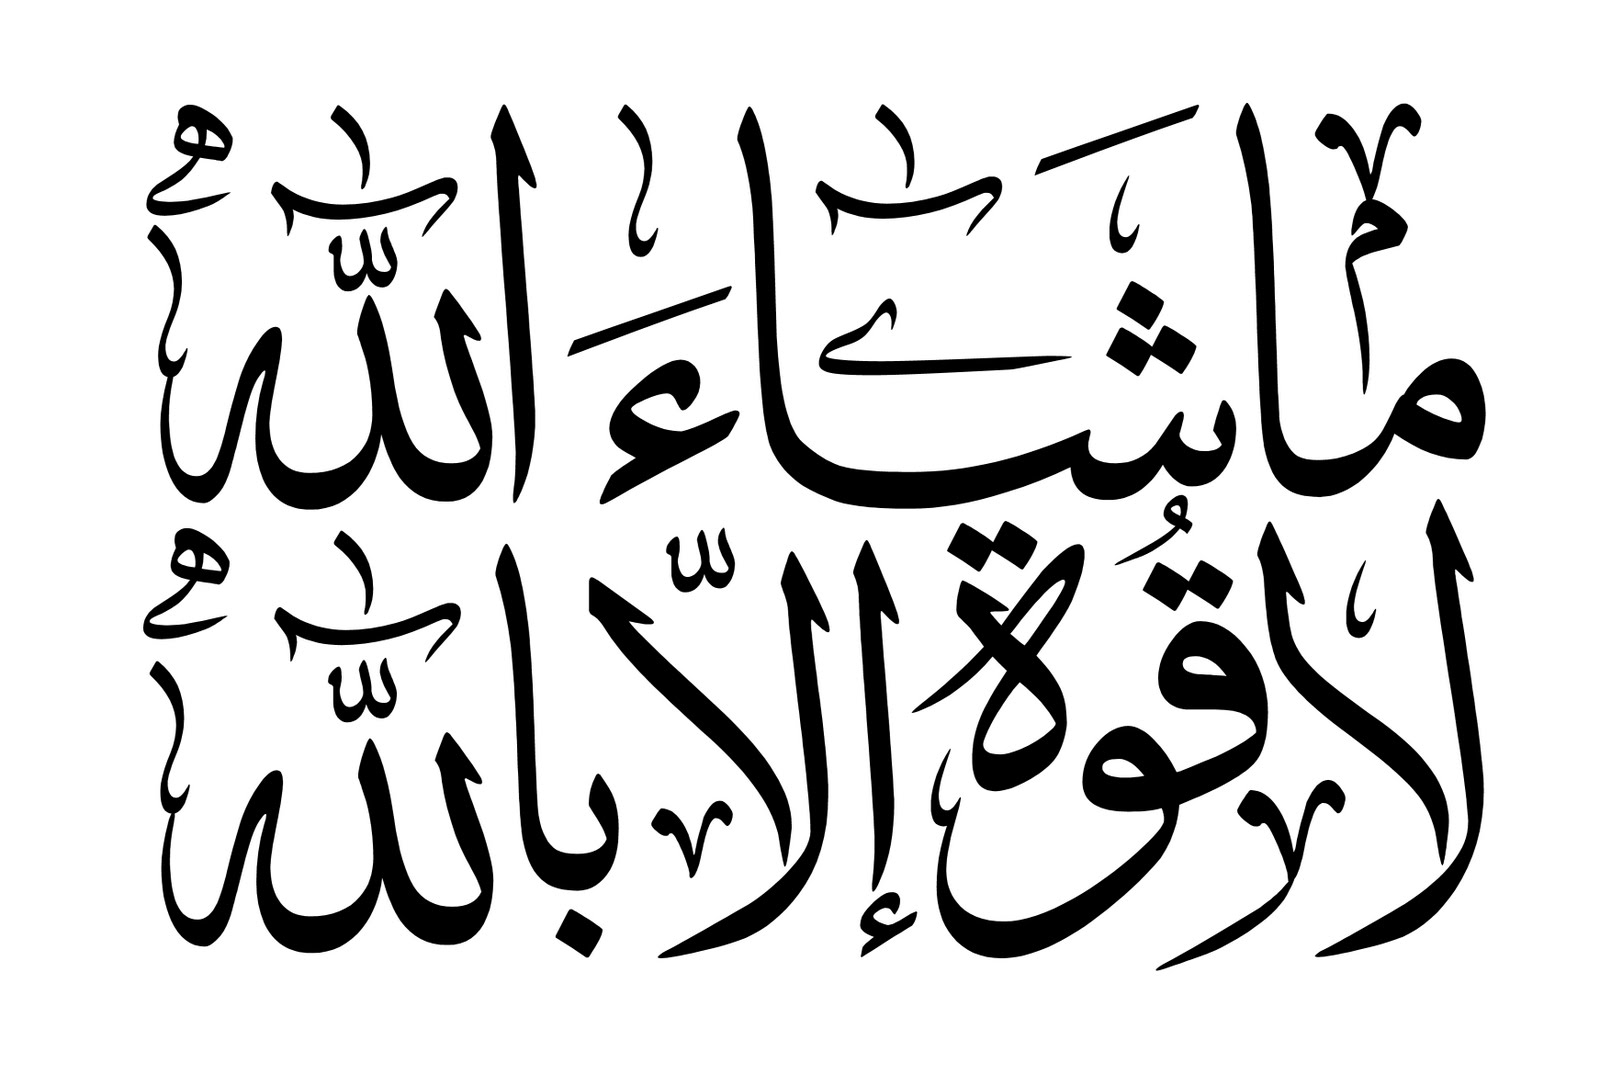 ما شاءَ الله
لا قُوة إلّا بالله